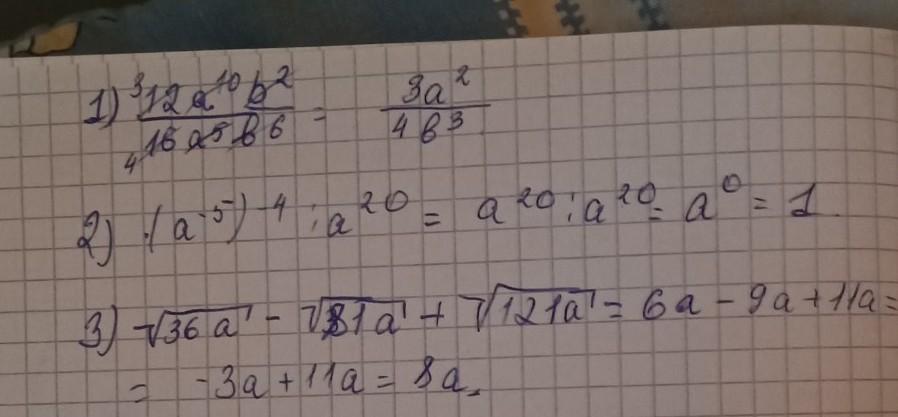 1) ³12a¹⁰b² / ₄16a⁵b⁶ = 3a² / 4b³
2) (a⁻⁵)⁻⁴ : a²⁰ = a²⁰ : a²⁰ = a⁰ = 1
3) √36a - √81a + √121a = 6a - 9a + 11a =
= -3a + 11a = 8a.